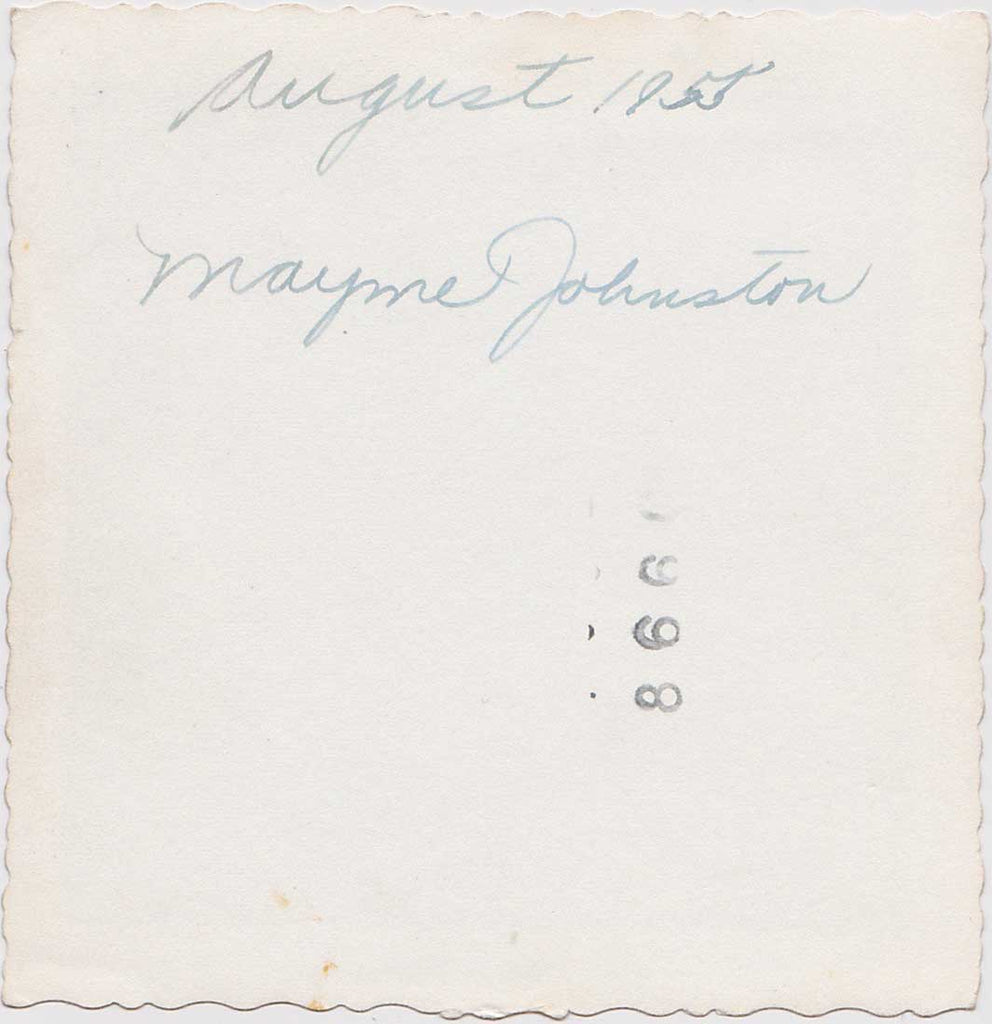 August 1955
Mayme Johnston